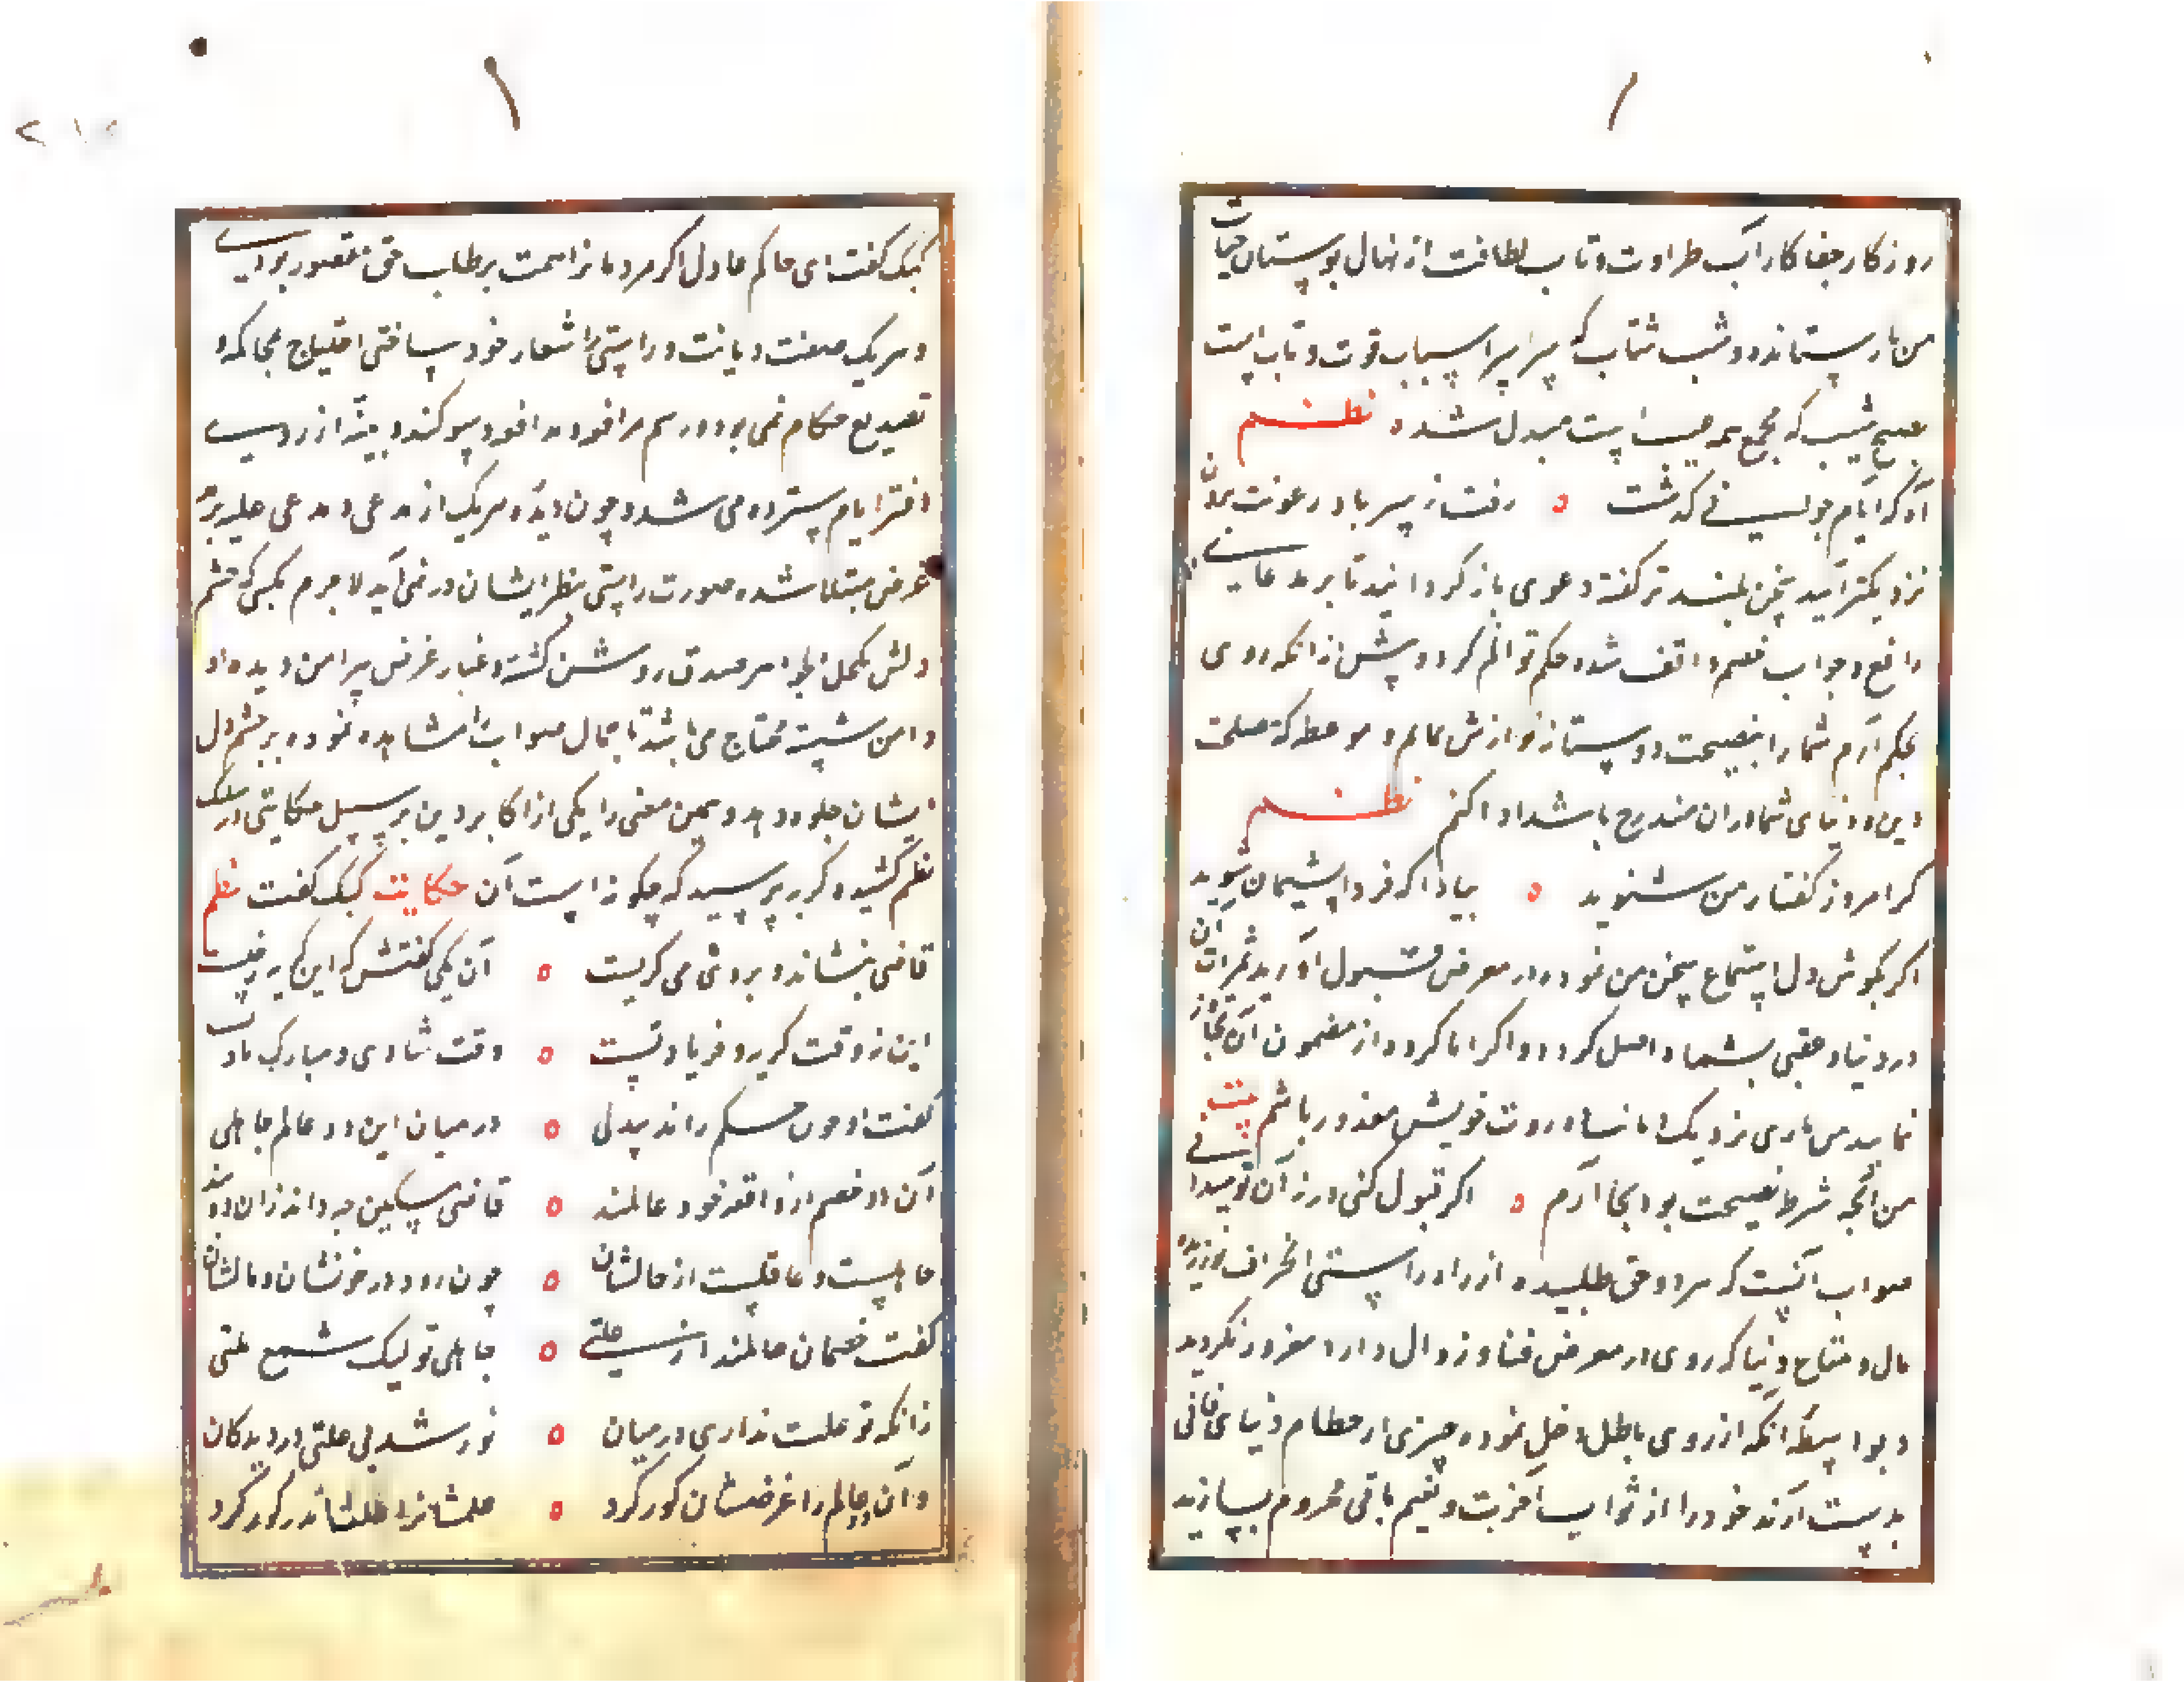 روزکار جفا کار آب طراوت و تاب لطافت از نهال بوستان حیات
من باز ستانده و شب شباب که پیرایه اسباب قوت و تاب است
بصبح شیب که مجمع همه عیبهاست مبدل شده نظم
آه که ایام جوانی کذشت رفت ز سر باد رعونت
نزدیکتر آیید سخن بلندتر کفته دعوی باز کردانید تا بر مدعای
واقع و جواب خصم واقف شده حکم توانم کرد و پیش از انکه روی
بحکم آرم شما را بنصیحت دوستانه نوازش نمایم و موعظه که مصلحت
دین و دنیای شما دران مندرج باشد ادا کنم نظم
کر امروز کفتار من نشنوید مبادا که فردا پشیمان شوید
اکر بکوش دل استماع سخن من نموده در معرض قبول آورید ثمرات آن
در دنیا و عقبی بشما واصل کردد و اکر ابا کرده از مضمون آن تجاوز
نمایید من باری نزدیک دیانت و مروت خویش معذور باشم بیت
من آنچه شرط نصیحت بود بجا آرم اکر قبول کنی ور نه آن تو میدانی
صواب آنست که هر دو حق طلبیده از راه راستی انحراف نورزیده
مال و متاع دنیا که روی در معرض فنا و زوال دارد مغرور نکردید
و بواسطه آنکه از روی باطل دخل نموده چیزی از حطام دنیای فانی
بدست آرند خود را از ثواب آخرت و نعیم باقی محروم نسازید
کبک کفت ای حاکم عادل اکر مردمانرا همت بر طلب حق مقصور بودی
و هر یک صفت دیانت و راستی را شعار خود ساختی احتیاج محاکمه و
تصدیع حکام نمی بود و رسم مرافعه و مدافعه و سوکند و بینه از روی
دفتر ایام سترده می شد و چون دیده هر یک از مدعی و مدعی علیه برمد
غرض مبتلا شده صورت راستی بنظر ایشان در نمی آید لاجرم بکسی که چشم
دلش بکحل الجواهر صدق روشن کشته و غبار غرض پیرامن دیده او
دامن نشسته محتاج می باشند تا جمال صواب را مشاهده نموده بر چشم دل
ایشان جلوه دهد و همین معنی را یکی از اکابر دین بر سبیل حکایتی در سلک
نظم کشیده کربه پرسید که چکونه است آن حکایت کبک کفت نظم
قاضی بنشاندند و می کریست آن یکی کفتش که این کریه ز چیست
این نه وقت کریه و فریاد تست وقت شادی و مبارک باد تست
کفت اوه چون حکم راند بیدلی در میان این دو عالم جاهلی
آن دو خصم از واقعه خود عالمند قاضی مسکین چه داند زان دو بند
جاهلست و غافلست از حالشان چون رود در خونشان و مالشان
کفت خصمان عالمند از علتی جاهلی تو لیک شمع ملتی
زانکه تو علت نداری در میان نور شد بی علتی در دیدکان
و آن دو عالم را غرضشان کور کرد علمشانرا علتشان در کور کرد